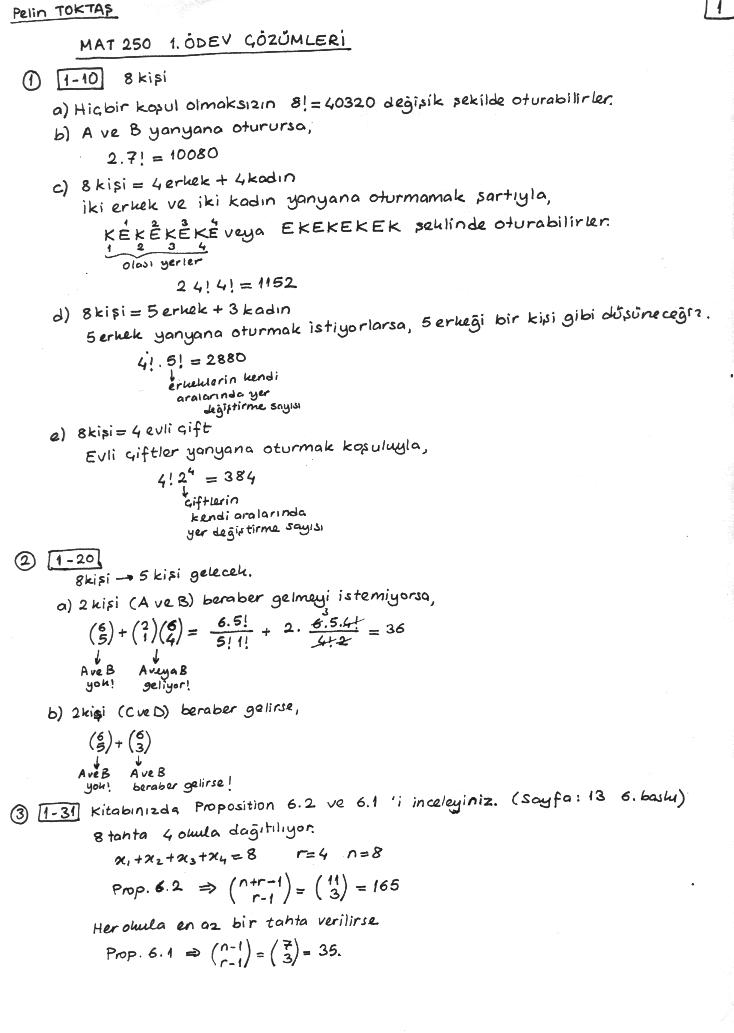 Pelin TOKTAŞ
1
MAT 250 1. ÖDEV ÇÖZÜMLERİ
① 1-10 8 kişi
a) Hiçbir koşul olmaksızın 8! = 40320 değişik şekilde oturabilirler.
b) A ve B yanyana oturursa,
2.7! = 10080
c) 8 kişi = 4 erkek + 4 kadın
iki erkek ve iki kadın yanyana oturmamak şartıyla,
1 2 3 4
KEKEKEKE veya EKEKEKEK şeklinde oturabilirler.
1 2 3 4
olası yerler
2 4! 4! = 1152
d) 8 kişi = 5 erkek + 3 kadın
5 erkek yanyana oturmak istiyorlarsa, 5 erkeği bir kişi gibi düşüneceğiz.
4! . 5! = 2880
↓ erkeklerin kendi
aralarında yer
değiştirme sayısı
e) 8 kişi = 4 evli çift
Evli çiftler yanyana oturmak koşuluyla,
4! 2⁴ = 384
↓
çiftlerin
kendi aralarında
yer değiştirme sayısı
② 1-20
8 kişi → 5 kişi gelecek.
a) 2 kişi (A ve B) beraber gelmeyi istemiyorsa,
(6 5) + (2 1)(6 4) = 6.5!/5!1! + 2. 6.5.4!/4!2 3 = 36
↓ ↓
A ve B A veya B
yok! geliyor!
b) 2 kişi (C ve D) beraber gelirse,
(6 5) + (6 3)
↓ ↓
A ve B A ve B
yok! beraber gelirse!
③ 1-31 Kitabınızda Proposition 6.2 ve 6.1 'i inceleyiniz. (Sayfa: 13 6. baskı)
8 tahta 4 okula dağıtılıyor.
x₁+x₂+x₃+x₄ = 8 r=4 n=8
Prop. 6.2 ⇒ (n+r-1 r-1) = (11 3) = 165
Her okula en az bir tahta verilirse
Prop. 6.1 ⇒ (n-1 r-1) = (7 3) = 35.